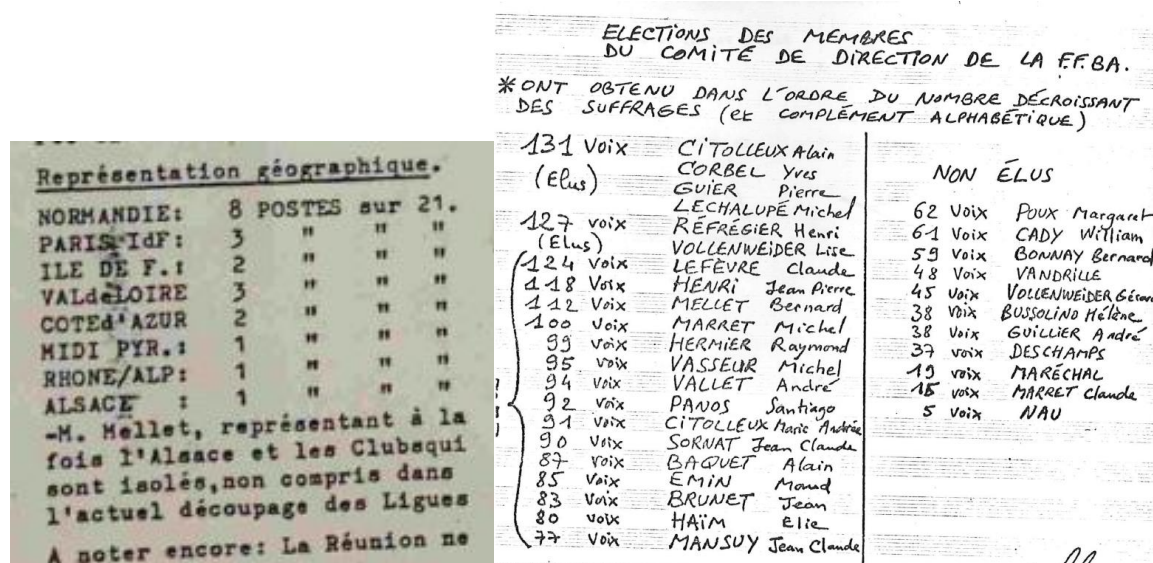 Représentation géographique.
NORMANDIE: 8 POSTES sur 21.
PARIS IdF: 3 " " "
ILE DE F.: 2 " " "
VALdeLOIRE 3 " " "
COTEd'AZUR 2 " " "
MIDI PYR.: 1 " " "
RHONE/ALP: 1 " " "
ALSACE : 1 " " "
-M. Mellet, représentant à la
fois l'Alsace et les Clubsqui
sont isolés,non compris dans
l'actuel découpage des Ligues
A noter encore: La Réunion ne
ELECTIONS DES MEMBRES
DU COMITÉ DE DIRECTION DE LA F.F.BA.
* ONT OBTENU DANS L'ORDRE DU NOMBRE DÉCROISSANT
DES SUFFRAGES (et COMPLÉMENT ALPHABÉTIQUE)
131 Voix CITOLLEUX Alain
(Elus) CORBEL Yves
GUIER Pierre
LECHALUPÉ Michel
127 voix RÉFRÉGIER Henri
(Elus) VOLLENWEIDER Lise
124 Voix LEFÈVRE Claude
118 Voix HENRI Jean Pierre
112 Voix MELLET Bernard
100 Voix MARRET Michel
99 Voix HERMIER Raymond
95 voix VASSEUR Michel
94 Voix VALLET André
92 Voix PANOS Santiago
91 Voix CITOLLEUX Marie Andrée
90 Voix SORNAT Jean Claude
87 Voix BAQUET Alain
85 Voix EMIN Maud
83 Voix BRUNET Jean
80 voix HAÏM Elie
77 Voix MANSUY Jean Claude
NON ÉLUS
62 Voix POUX Margaret
61 Voix CADY William
59 Voix BONNAY Bernard
48 Voix VANDRILLE
45 Voix VOLLENWEIDER Gérard
38 Voix BUSSOLINO Hélène
38 Voix GUILLIER André
37 voix DESCHAMPS
19 voix MARÉCHAL
15 voix MARRET Claude
5 voix NAU